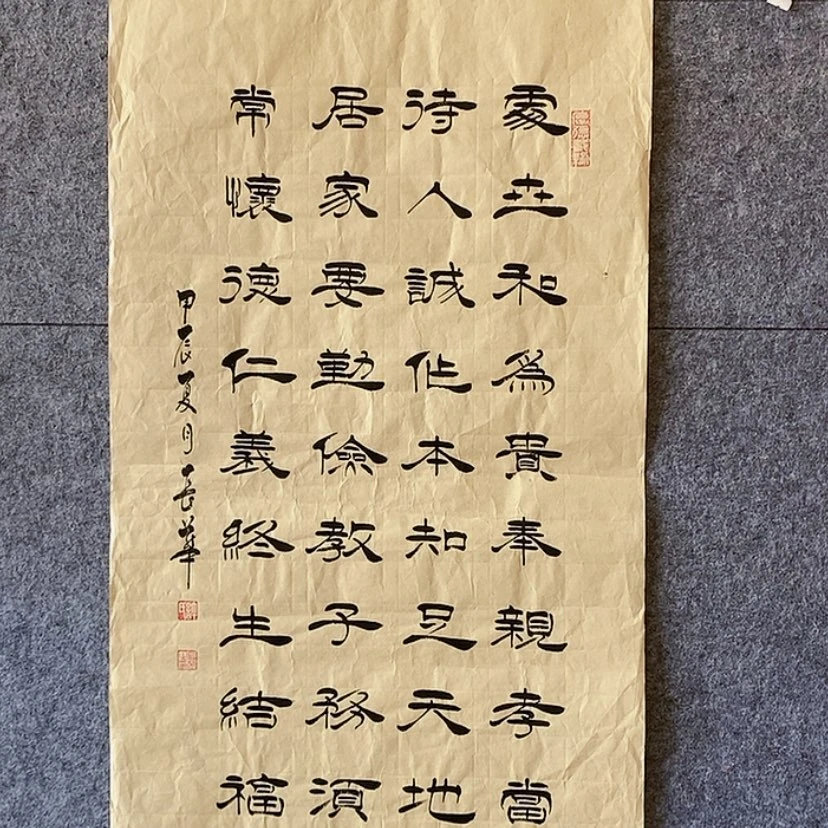 處世和為貴奉親孝當
待人誠作本知足天地
居家要勤儉教子務須
常懷德仁義終生結福
甲辰夏月長華